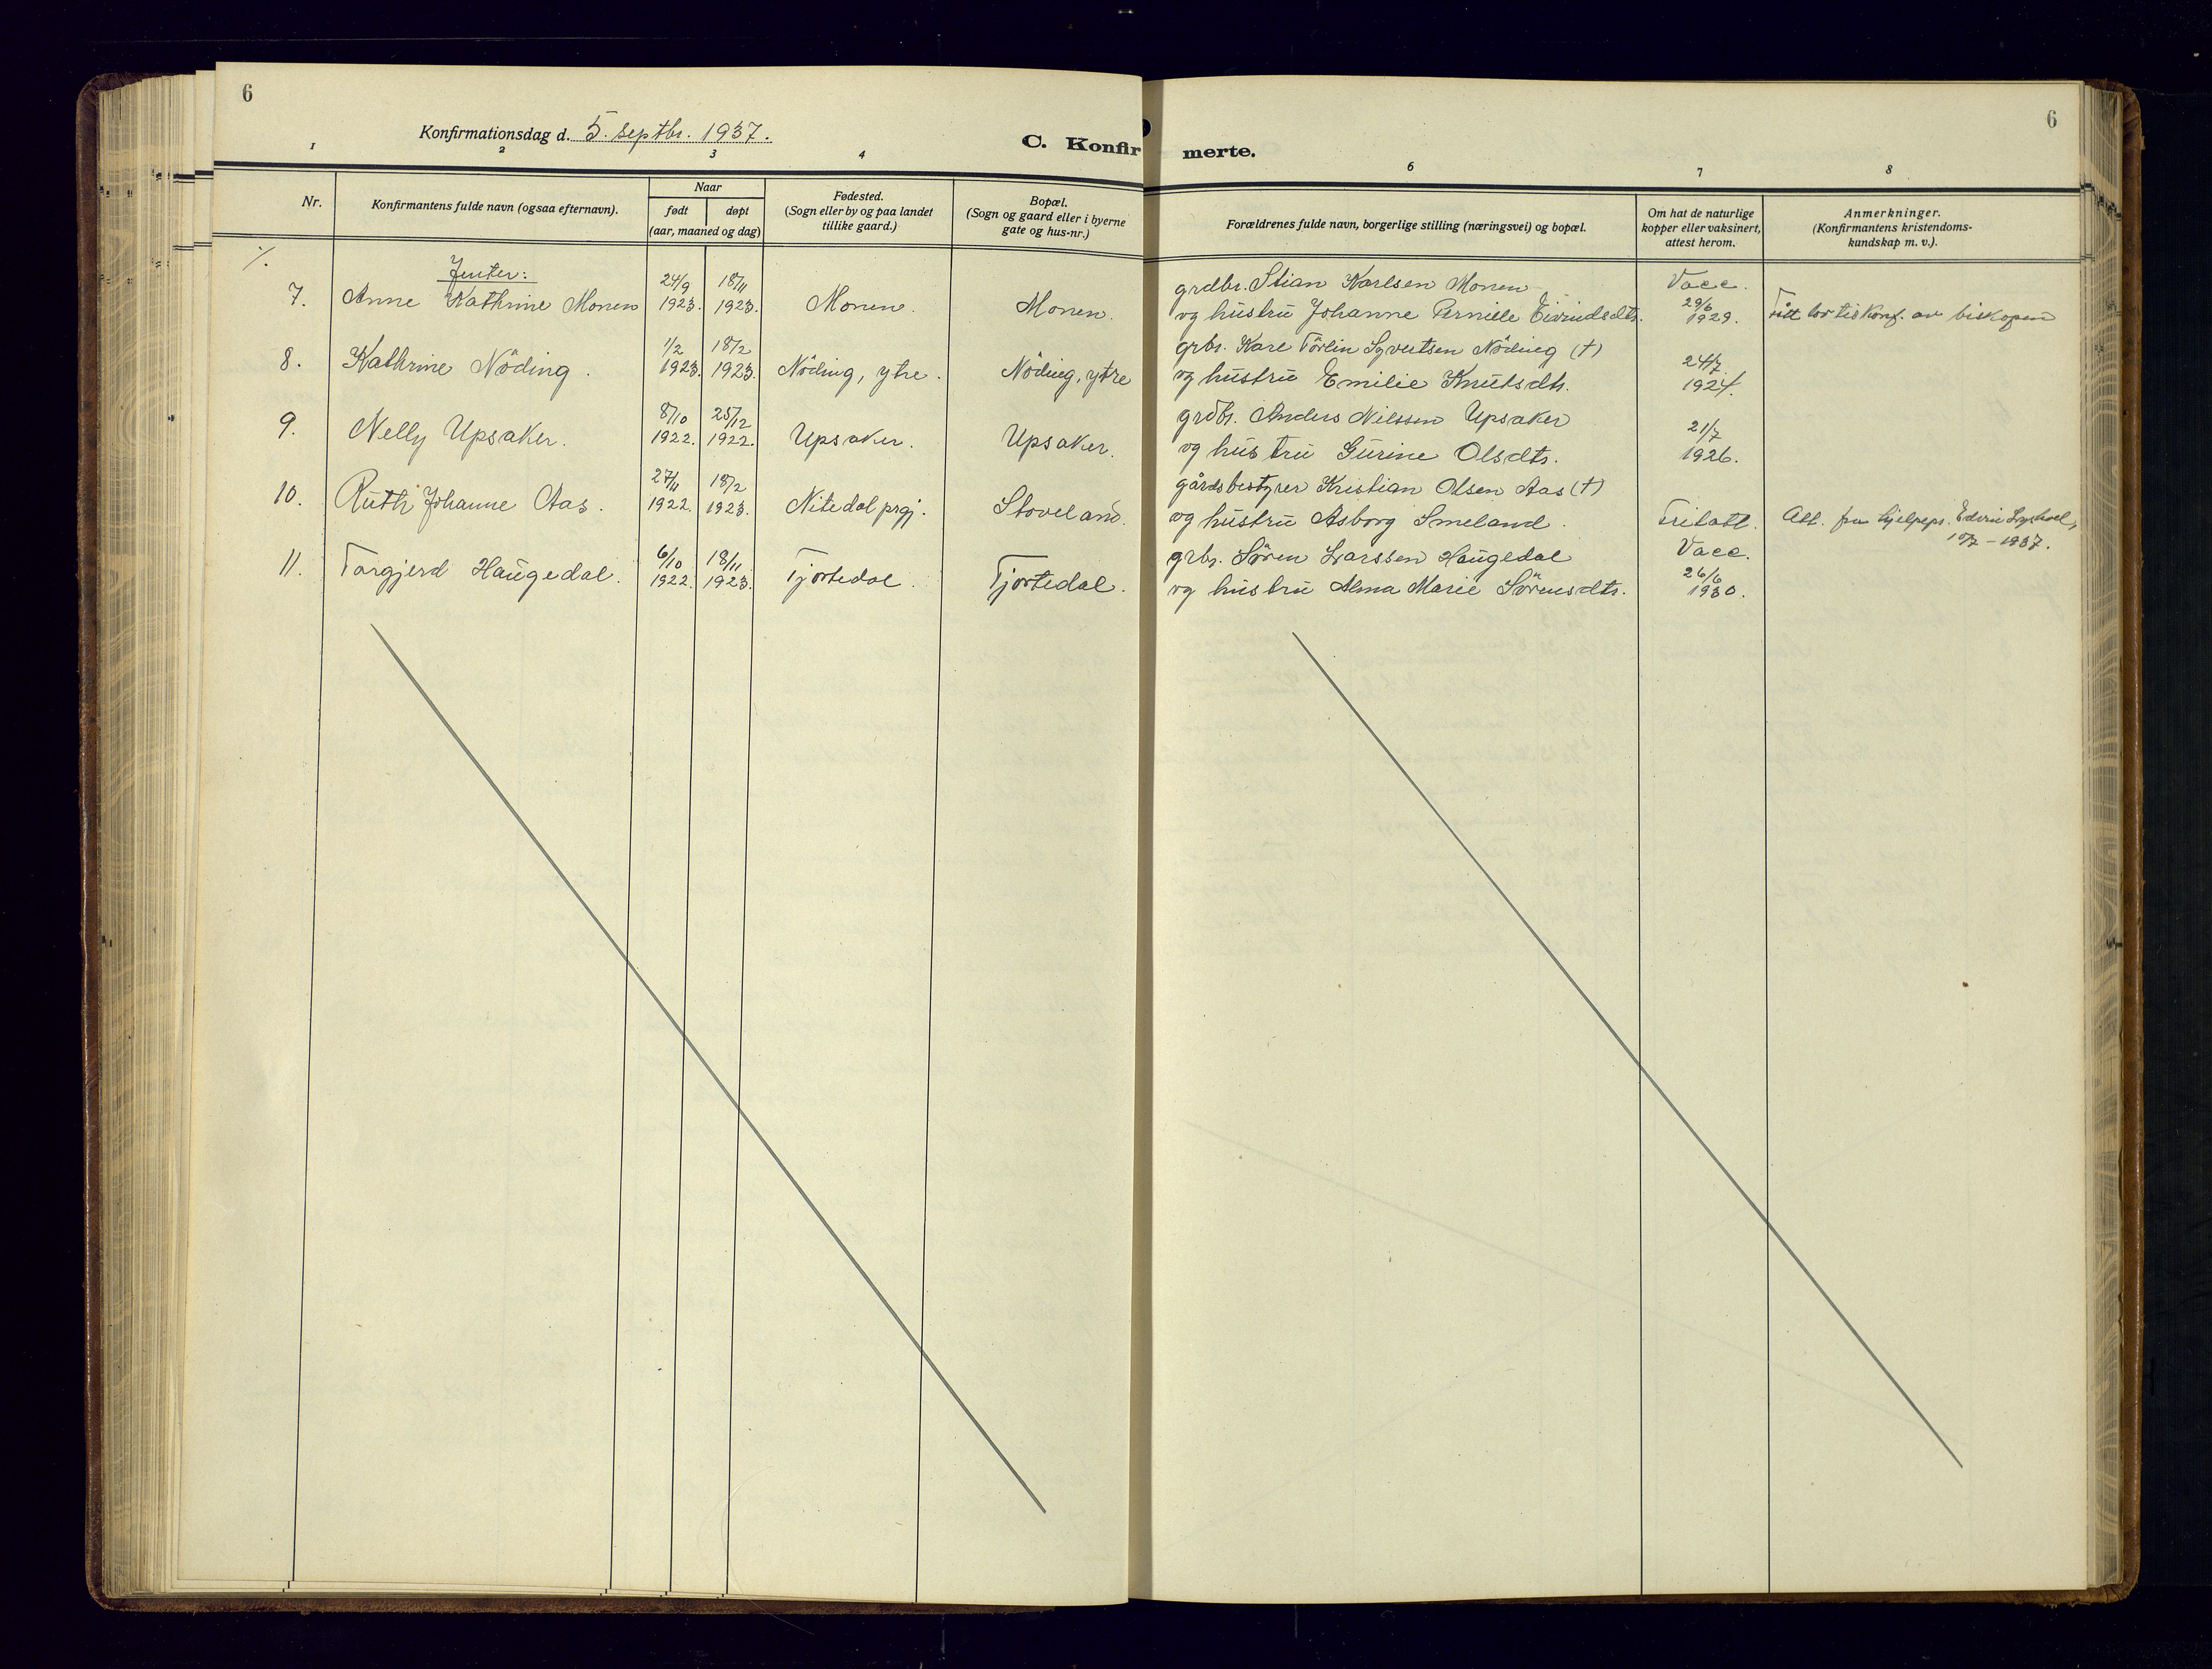 6
6
Konfirmationsdag d. 5. septbr. 1937.
C. Konfirmerte.
1 2 3 4 6 7 8
Nr.
Konfirmantens fulde navn (ogsaa efternavn).
Naar
født døpt
(aar, maaned og dag)
Fødested.
(Sogn eller by og paa landet
tillike gaard.)
Bopæl.
(Sogn og gaard eller i byerne
gate og hus-nr.)
Forældrenes fulde navn, borgerlige stilling (næringsvei) og bopæl.
Om hat de naturlige
kopper eller vaksinert,
attest herom.
Anmerkninger.
(Konfirmantens kristendoms-
kundskap m. v.).
Jenter:
24/9 18/11 grdbr. Stian Karlsen Monen Vacc.
7. Anne Kathrine Monen 1923. 1923. Monen. Monen. og hustru Johanne Pernille Eivindsdtr. 29/6 1929. av biskopen
1/2 18/2 grbr. Karl Törlin Syvertsen Nöding (†)
8. Kathrine Nöding. 1923. 1923. Nöding, ytre. Nöding, ytre og hustru Emilie Knutsdtr. 24/7 1924.
8/10 25/12 grdbr. Anders Nilssen Upsaker
9. Nelly Upsaker. 1922. 1922. Upsaker. Upsaker. og hustru Gurine Olsdtr. 21/7 1926.
27/11 18/2 gårdsbestyrer Kristian Olsen Aas (†)
10. Ruth Johanne Aas. 1922. 1923. Nitedal prgj. Stoveland. og hustru Asborg Smeland. Fritatt. Att. fra hjelpepr. Edvin
1937.
6/10 18/11 grbr. Sören Larssen Haugedal Vacc.
11. Torgjerd Haugedal. 1922. 1923. Tjortedal. Tjortedal. og hustru Alma Marie Sörensdtr. 26/6 1930.